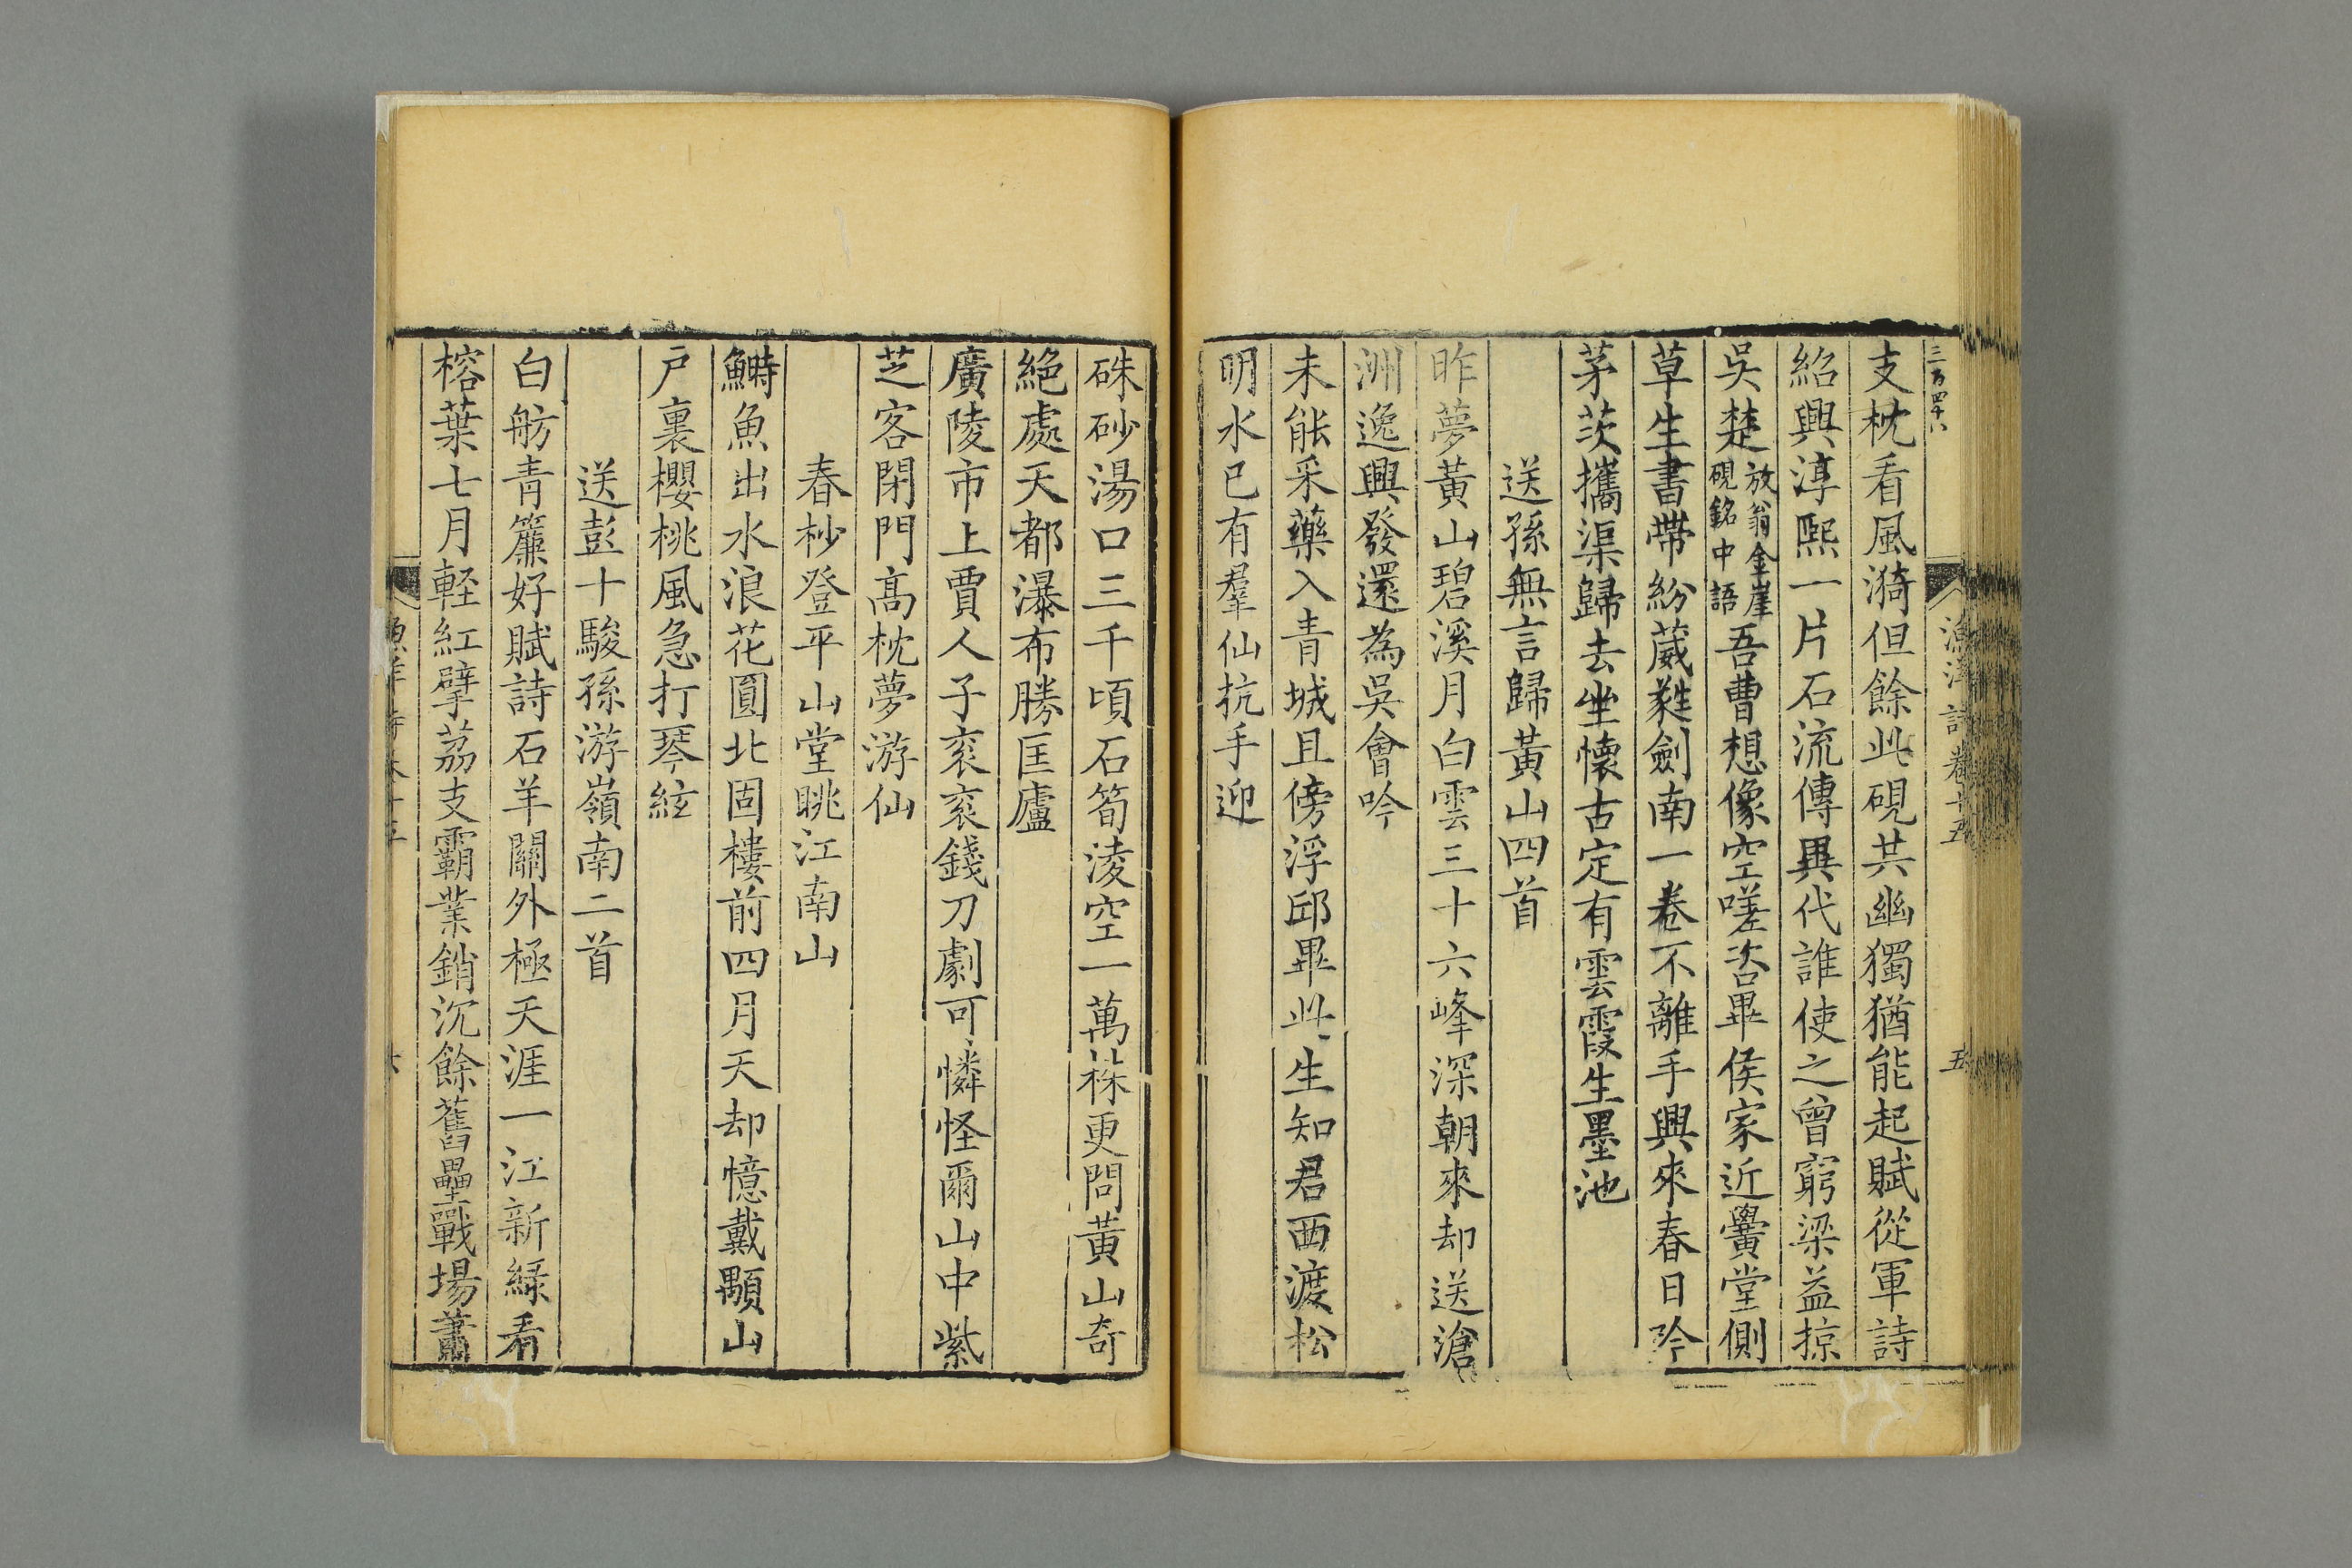 三百四十八
漁洋詩卷十五
五
支枕看風漪但餘此硯共幽獨猶能起賦從軍詩
紹興淳熙一片石流傳異代誰使之曾窮梁益掠
吳楚放翁金崖硯銘中語吾曹想像空嗟咨畢侯家近黌堂側
草生書帶紛葳蕤劍南一卷不離手興來春日吟
茅茨攜渠歸去坐懐古定有雲霞生墨池
送孫無言歸黃山四首
昨夢黃山碧溪月白雲三十六峰深朝來却送滄
洲逸興發還為吳會吟
未能采藥入青城且傍浮邱畢此生知君西渡松
明水已有羣仙抗手迎
硃砂湯口三千頃石筍淩空一萬株更問黃山奇
絕處天都瀑布勝匡廬
廣陵市上賈人子衮衮錢刀劇可憐怪爾山中紫
芝客閉門高枕夢游仙
春杪登平山堂眺江南山
鰣魚出水浪花圓北固樓前四月天却憶戴顒山
戶裏櫻桃風急打琴絃
送彭十駿孫游嶺南二首
白舫青簾好賦詩石羊關外極天涯一江新緑看
榕葉七月輕紅擘荔支霸業銷沉餘舊壘戰場蕭